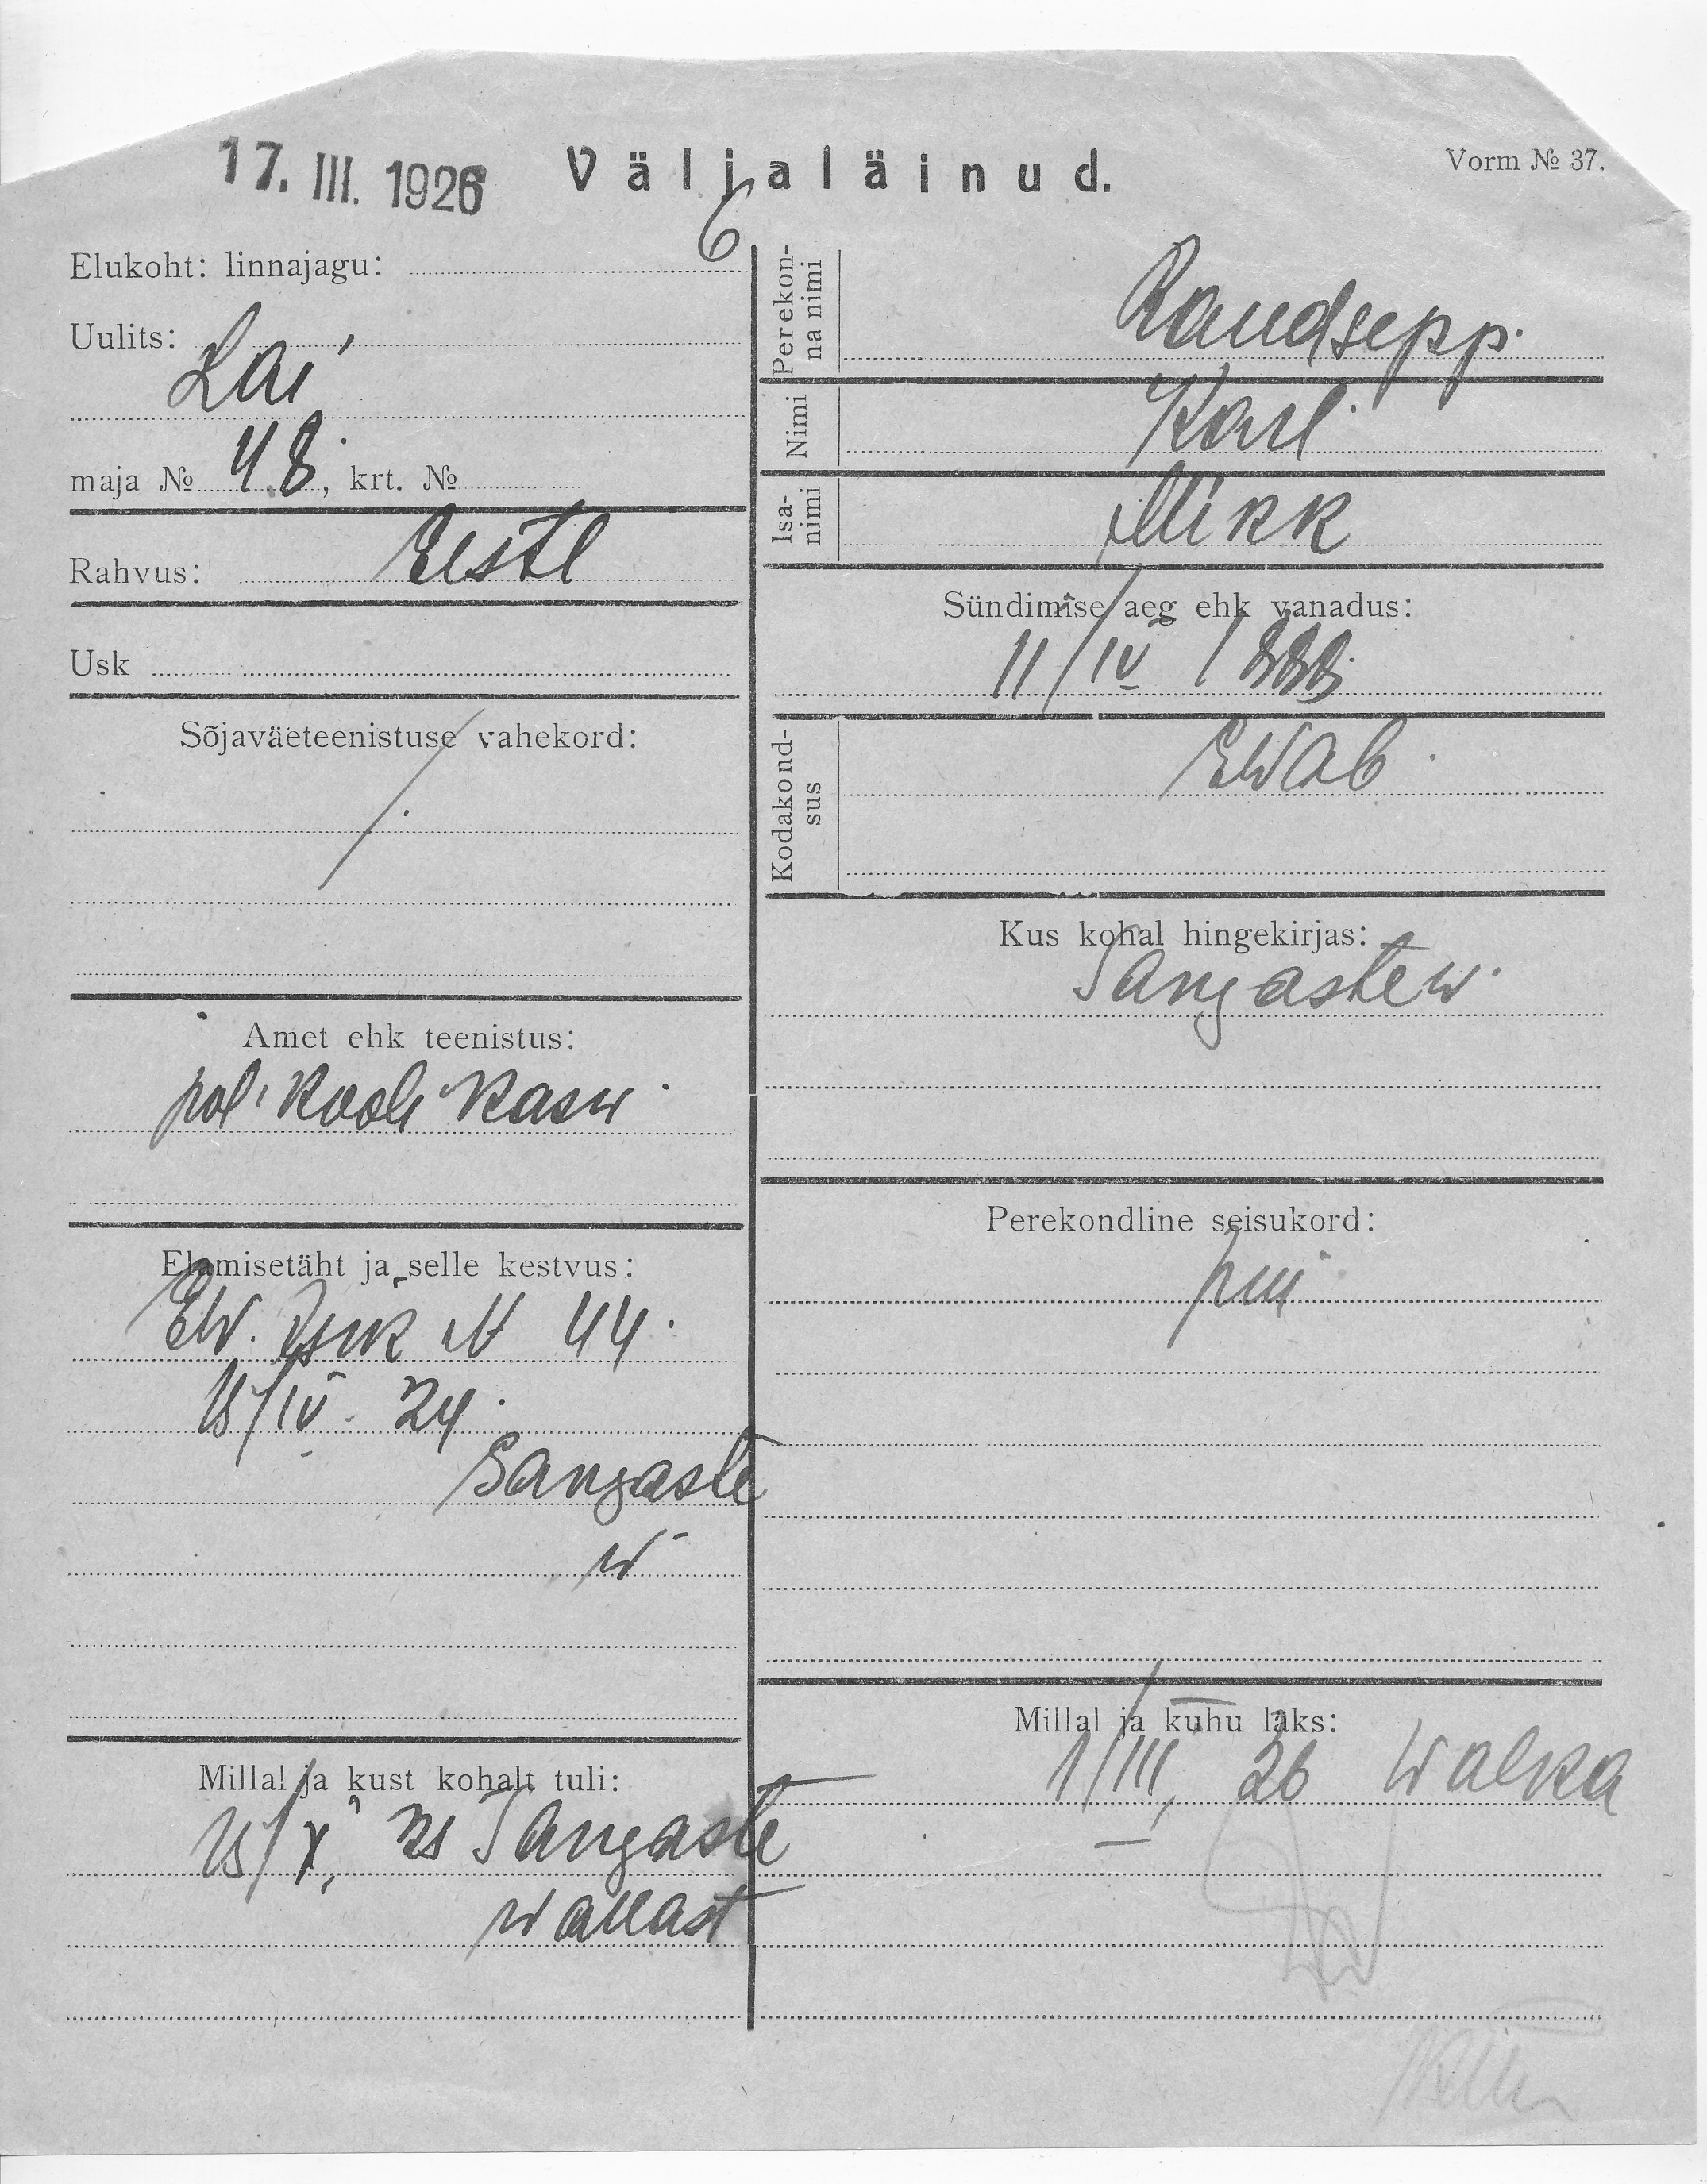 17. III. 1926
Väljaläinud.
Vorm № 37.
Elukoht: linnajagu: 6
Uulits: Lai
maja № 48, krt. №
Rahvus: Eestl
Usk
Sõjaväeteenistuse vahekord:
Amet ehk teenistus:
pol. Kooli Kasw.
Elamisetäht ja selle kestvus:
EW. Isik № 44.
15/IV. 24.
Sangaste
w
Millal ja kust kohalt tuli:
15/X, 25 Sangaste
wallast
Perekonna nimi
Raudsepp.
Nimi
Karl
Isanimi
Mikk
Sündimise aeg ehk vanadus:
11/IV 1888.
Kodakondsus
EWab.
Kus kohal hingekirjas:
Sangaste w.
Perekondline seisukord:
Millal ja kuhu läks:
1/III, 26 Walka